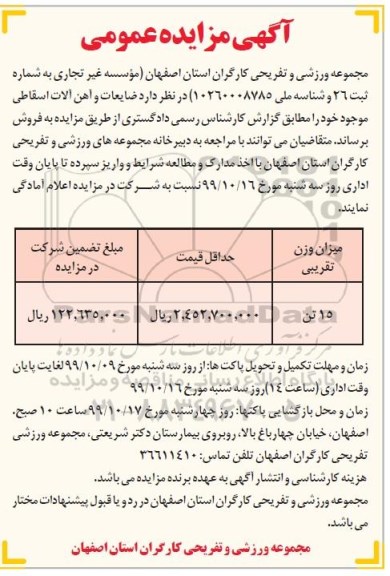 آگهی مزایده عمومی
مجموعه ورزشی و تفریحی کارگران استان اصفهان (مؤسسه غیر تجاری به شماره
ثبت ۲۶ و شناسه ملی ۱۰۲۶۰۰۰۸۷۸۵) در نظر دارد ضایعات و آهن آلات اسقاطی
موجود خود را مطابق گزارش کارشناس رسمی دادگستری از طریق مزایده به فروش
برساند. متقاضیان می توانند با مراجعه به دبیرخانه مجموعه های ورزشی و تفریحی
کارگران استان اصفهان با اخذ مدارک و مطالعه شرایط و واریز سپرده تا پایان وقت
اداری روز سه شنبه مورخ ۹۹/۱۰/۱۶ نسبت به شرکت در مزایده اعلام آمادگی
نمایند.
میزان وزن تقریبی
حداقل قیمت
مبلغ تضمین شرکت در مزایده
۱۵ تن
۲،۴۵۲،۷۰۰،۰۰۰ ریال
۱۲۲،۶۳۵،۰۰۰ ریال
زمان و مهلت تکمیل و تحویل پاکت ها: از روز سه شنبه مورخ ۹۹/۱۰/۰۹ لغایت پایان
وقت اداری (ساعت ۱۴) روز سه شنبه مورخ ۹۹/۱۰/۱۶
زمان و محل بازگشایی پاکتها: روز چهارشنبه مورخ ۹۹/۱۰/۱۷ ساعت ۱۰ صبح.
اصفهان، خیابان چهارباغ بالا، روبروی بیمارستان دکتر شریعتی، مجموعه ورزشی
تفریحی کارگران اصفهان تلفن تماس: ۳۶۶۱۱۴۱۰
هزینه کارشناسی و انتشار آگهی به عهده برنده مزایده می باشد.
مجموعه ورزشی و تفریحی کارگران استان اصفهان در رد و یا قبول پیشنهادات مختار
می باشد.
مجموعه ورزشی و تفریحی کارگران استان اصفهان